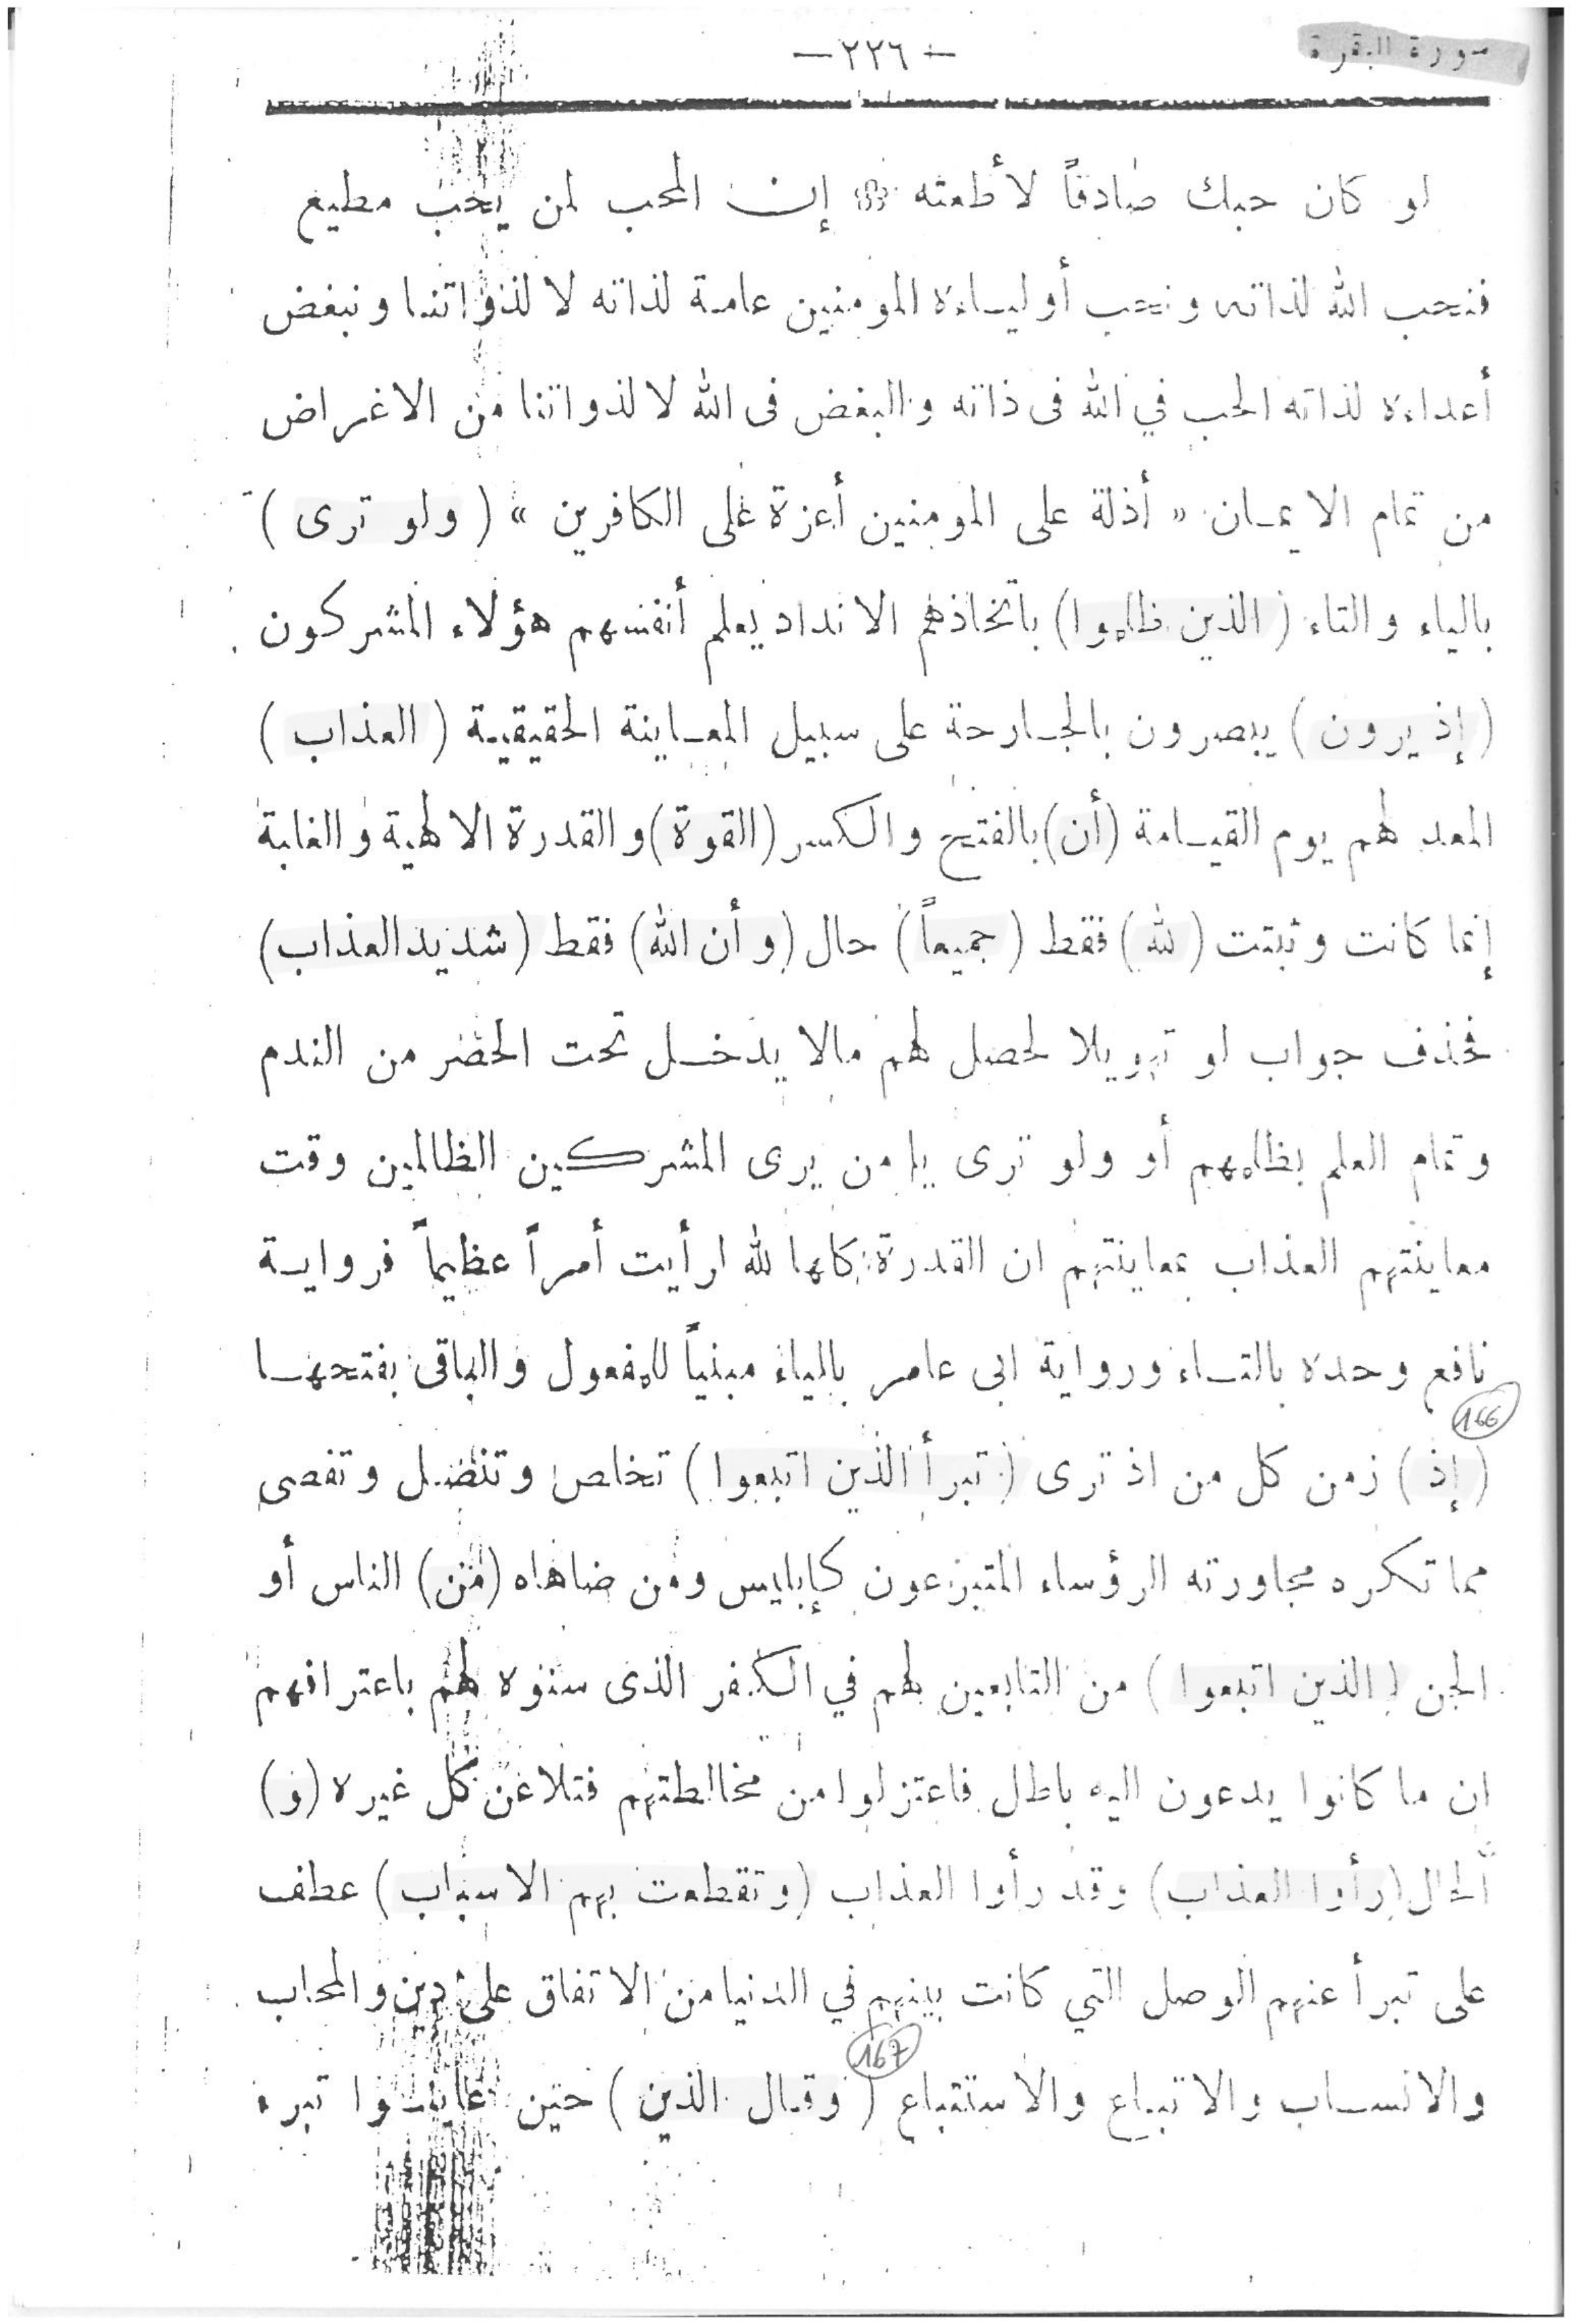 سورة البقرة
— ٢٢٦ —
لو كان حبك صادقاً لأطعته إن المحب لمن يحب مطيع
فنحب الله لذاته ونحب أولياءه المومنين عامة لذاته لا لذواتنا ونبغض
أعداءه لذاته الحب في الله فى ذاته والبغض فى الله لا لذواتنا من الاغراض
من تمام الايمان « أذلة على المومنين أعزة على الكافرين » ( ولو ترى )
بالياء والتاء ( الذين ظلموا ) باتخاذهم الانداد يعلم أنفسهم هؤلاء المشركون
( إذ يرون ) يبصرون بالجارحة على سبيل المعاينة الحقيقية ( العذاب )
المعد لهم يوم القيامة (أن) بالفتح والكسر (القوة) والقدرة الالهية والغلبة
إنما كانت وثبتت ( لله ) فقط ( جميعاً ) حال (وأن الله) فقط (شديد العذاب)
فحذف جواب لو تهويلا لحصل لهم مالا يدخل تحت الحصر من الندم
وتمام العلم بظلمهم أو ولو ترى يا من يرى المشركين الظالمين وقت
معاينتهم العذاب بمعاينتهم ان القدرة كلها لله لرأيت أمراً عظيماً فرواية
نافع وحده بالتاء ورواية ابى عامر بالياء مبنياً للمفعول والباقى بفتحها
166
( إذ ) زمن كل من اذ ترى ( تبرأ الذين اتبعوا ) تخلص وتنصل وتفصى
مما تكره مجاورته الرؤساء المتبوعون كإبليس ومن ضاهاه (من) الناس أو
الجن ( الذين اتبعوا ) من التابعين لهم في الكفر الذى سنوه لهم باعترافهم
ان ما كانوا يدعون اليه باطل فاعتزلوا من مخالطتهم فتلاعن كل غيره (و)
الحال (رأوا العذاب) وقد رأوا العذاب (وتقطعت بهم الاسباب) عطف
على تبرأ عنهم الوصل التي كانت بينهم في الدنيا من الاتفاق على دين والمحاب
167
والانساب والاتباع والاستتباع ( وقال الذين ) حين عاينوا تبرء